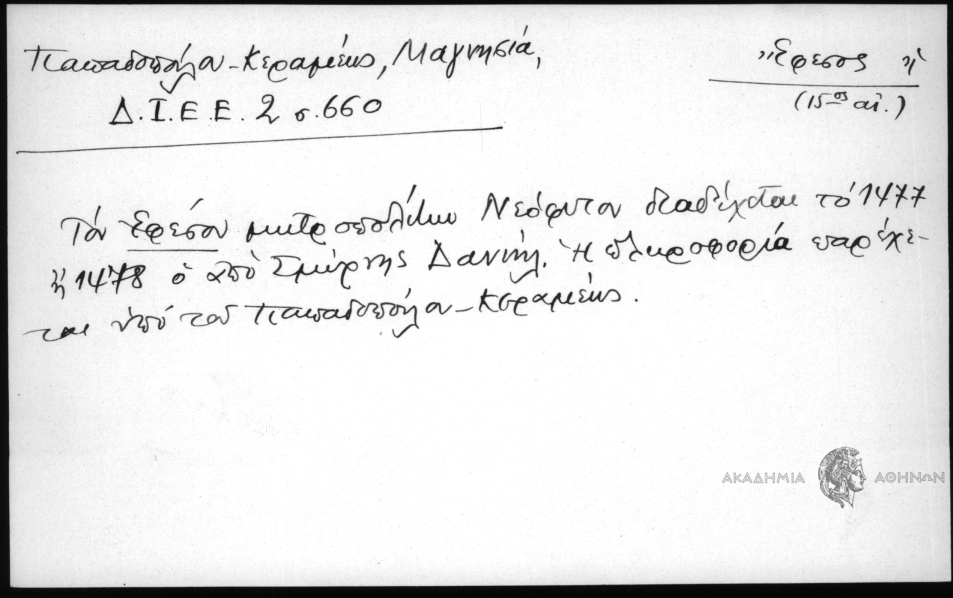 Παπαδοπούλου-Κεραμέως, Μαγνησία,
Δ.Ι.Ε.Ε. 2 σ. 660
Ἔφεσος ἡ
(15ος αἰ.)
Τόν Ἐφέσου μητροπολίτην Νεόφυτον διαδέχεται τό 1477
ἤ 1478 ὁ ἀπό Σμύρνης Δανιήλ. Ἡ πληροφορία παρέχε-
ται ὑπό τοῦ Παπαδοπούλου-Κεραμέως.
ΑΚΑΔΗΜΙΑ ΑΘΗΝΩΝ